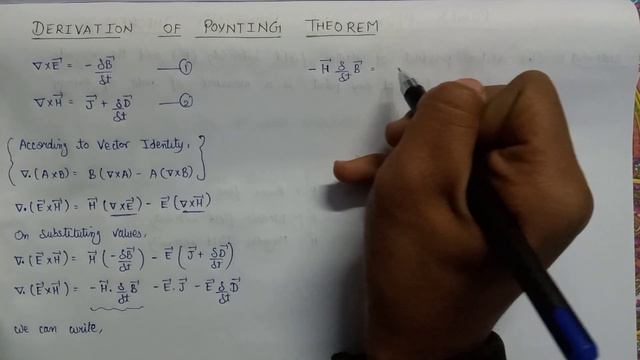 DERIVATION OF POYNTING THEOREM
∇×E⃗ = - δB⃗/δt —①
∇×H⃗ = J⃗ + δD⃗/δt —②
{According to Vector Identity,
∇.(A×B) = B(∇×A) - A(∇×B)}
∇.(E⃗×H⃗) = H⃗(∇×E⃗) - E⃗(∇×H⃗)
On substituting values,
∇.(E⃗×H⃗) = H⃗(-δB⃗/δt) - E⃗(J⃗ + δD⃗/δt)
∇.(E⃗×H⃗) = -H⃗. δ/δt B⃗ - E⃗.J⃗ - E⃗ δ/δt D⃗
we can write,
-H⃗ δ/δt B⃗ =